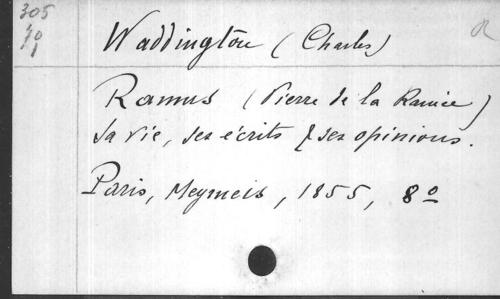 305
70
1
Waddington (Charles)
R
Ramus (Pierre de la Ramée)
sa vie, ses écrits & ses opinions.
Paris, Meymeis, 1855, 8º